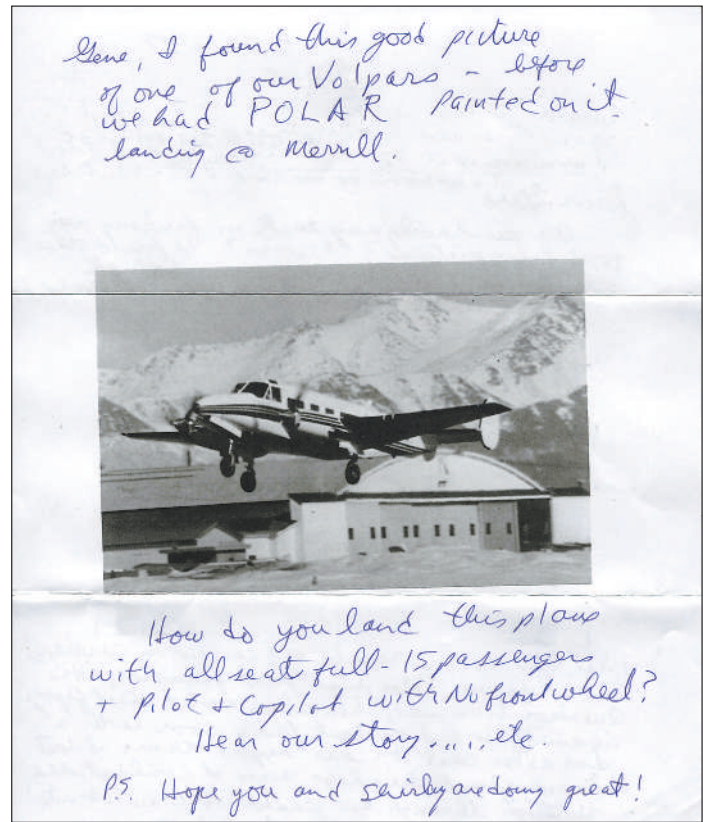 Gene, I found this good picture
of one of our Volpars - before
we had POLAR painted on it.
landing @ Merrill.
How do you land this plane
with all seat full - 15 passengers
+ Pilot & Copilot with No front wheel?
Hear our story.....etc.
P.S. Hope you and Shirley are doing great!